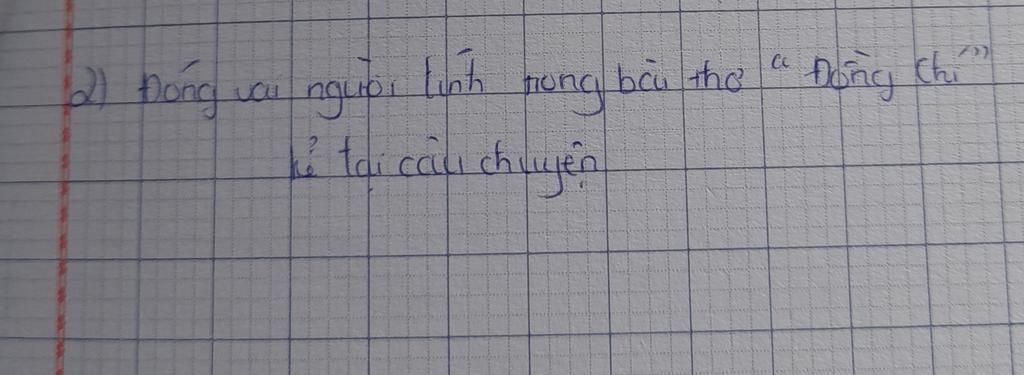 2) Đóng vai người lính trong bài thơ “Đồng chí”
kể lại câu chuyện